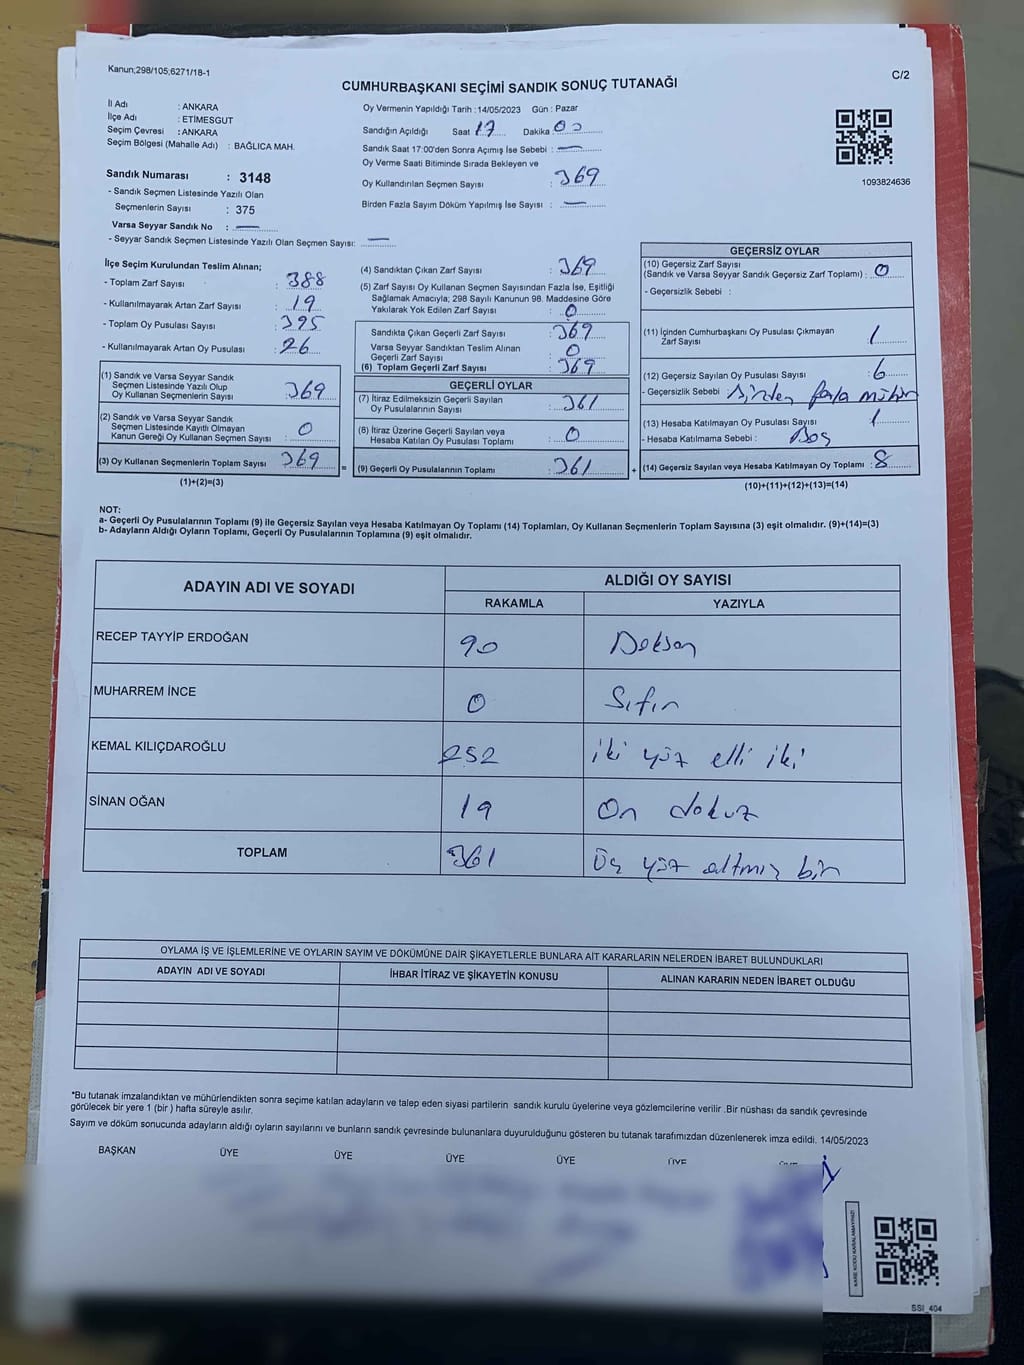 Kanun;298/105;6271/18-1
C/2
CUMHURBAŞKANI SEÇİMİ SANDIK SONUÇ TUTANAĞI
İl Adı : ANKARA
İlçe Adı : ETİMESGUT
Seçim Çevresi : ANKARA
Seçim Bölgesi (Mahalle Adı) : BAĞLICA MAH.
Oy Vermenin Yapıldığı Tarih : 14/05/2023 Gün : Pazar
Sandığın Açıldığı Saat 17 Dakika 00
Sandık Saat 17:00'den Sonra Açımış İse Sebebi : —
Oy Verme Saati Bitiminde Sırada Bekleyen ve
Oy Kullandırılan Seçmen Sayısı : 369
Birden Fazla Sayım Döküm Yapılmış İse Sayısı : —
1093824636
Sandık Numarası : 3148
- Sandık Seçmen Listesinde Yazılı Olan
Seçmenlerin Sayısı : 375
Varsa Seyyar Sandık No : —
- Seyyar Sandık Seçmen Listesinde Yazılı Olan Seçmen Sayısı: —
İlçe Seçim Kurulundan Teslim Alınan;
- Toplam Zarf Sayısı : 388
- Kullanılmayarak Artan Zarf Sayısı : 19
- Toplam Oy Pusulası Sayısı : 395
- Kullanılmayarak Artan Oy Pusulası : 26
(1) Sandık ve Varsa Seyyar Sandık
Seçmen Listesinde Yazılı Olup
Oy Kullanan Seçmenlerin Sayısı : 369
(2) Sandık ve Varsa Seyyar Sandık
Seçmen Listesinde Kayıtlı Olmayan
Kanun Gereği Oy Kullanan Seçmen Sayısı : 0
(3) Oy Kullanan Seçmenlerin Toplam Sayısı : 369
(1)+(2)=(3)
(4) Sandıktan Çıkan Zarf Sayısı : 369
(5) Zarf Sayısı Oy Kullanan Seçmen Sayısından Fazla İse, Eşitliği
Sağlamak Amacıyla; 298 Sayılı Kanunun 98. Maddesine Göre
Yakılarak Yok Edilen Zarf Sayısı : 0
Sandıkta Çıkan Geçerli Zarf Sayısı : 369
Varsa Seyyar Sandıktan Teslim Alınan
Geçerli Zarf Sayısı : 0
(6) Toplam Geçerli Zarf Sayısı : 369
GEÇERLİ OYLAR
(7) İtiraz Edilmeksizin Geçerli Sayılan
Oy Pusulalarının Sayısı : 361
(8) İtiraz Üzerine Geçerli Sayılan veya
Hesaba Katılan Oy Pusulası Toplamı : 0
= (9) Geçerli Oy Pusulalarının Toplamı : 361 +
GEÇERSİZ OYLAR
(10) Geçersiz Zarf Sayısı
(Sandık ve Varsa Seyyar Sandık Geçersiz Zarf Toplamı) : 0
- Geçersizlik Sebebi :
(11) İçinden Cumhurbaşkanı Oy Pusulası Çıkmayan
Zarf Sayısı : 1
(12) Geçersiz Sayılan Oy Pusulası Sayısı : 6
- Geçersizlik Sebebi : Birden fazla mühür
(13) Hesaba Katılmayan Oy Pusulası Sayısı : 1
- Hesaba Katılmama Sebebi : Boş
(14) Geçersiz Sayılan veya Hesaba Katılmayan Oy Toplamı : 8
(10)+(11)+(12)+(13)=(14)
NOT:
a- Geçerli Oy Pusulalarının Toplamı (9) ile Geçersiz Sayılan veya Hesaba Katılmayan Oy Toplamı (14) Toplamları, Oy Kullanan Seçmenlerin Toplam Sayısına (3) eşit olmalıdır. (9)+(14)=(3)
b- Adayların Aldığı Oyların Toplamı, Geçerli Oy Pusulalarının Toplamına (9) eşit olmalıdır.
ADAYIN ADI VE SOYADI
ALDIĞI OY SAYISI
RAKAMLA YAZIYLA
RECEP TAYYİP ERDOĞAN 90 Doksan
MUHARREM İNCE 0 Sıfır
KEMAL KILIÇDAROĞLU 252 iki yüz elli iki
SİNAN OĞAN 19 On dokuz
TOPLAM 361 Üç yüz altmış bir
OYLAMA İŞ VE İŞLEMLERİNE VE OYLARIN SAYIM VE DÖKÜMÜNE DAİR ŞİKAYETLERLE BUNLARA AİT KARARLARIN NELERDEN İBARET BULUNDUKLARI
ADAYIN ADI VE SOYADI İHBAR İTİRAZ VE ŞİKAYETİN KONUSU ALINAN KARARIN NEDEN İBARET OLDUĞU
*Bu tutanak imzalandıktan ve mühürlendikten sonra seçime katılan adayların ve talep eden siyasi partilerin sandık kurulu üyelerine veya gözlemcilerine verilir .Bir nüshası da sandık çevresinde
görülecek bir yere 1 (bir ) hafta süreyle asılır.
Sayım ve döküm sonucunda adayların aldığı oyların sayılarını ve bunların sandık çevresinde bulunanlara duyurulduğunu gösteren bu tutanak tarafımızdan düzenlenerek imza edildi. 14/05/2023
BAŞKAN ÜYE ÜYE ÜYE ÜYE ÜYE
KARE KODU KARALAMAYINIZ!
SSI_404